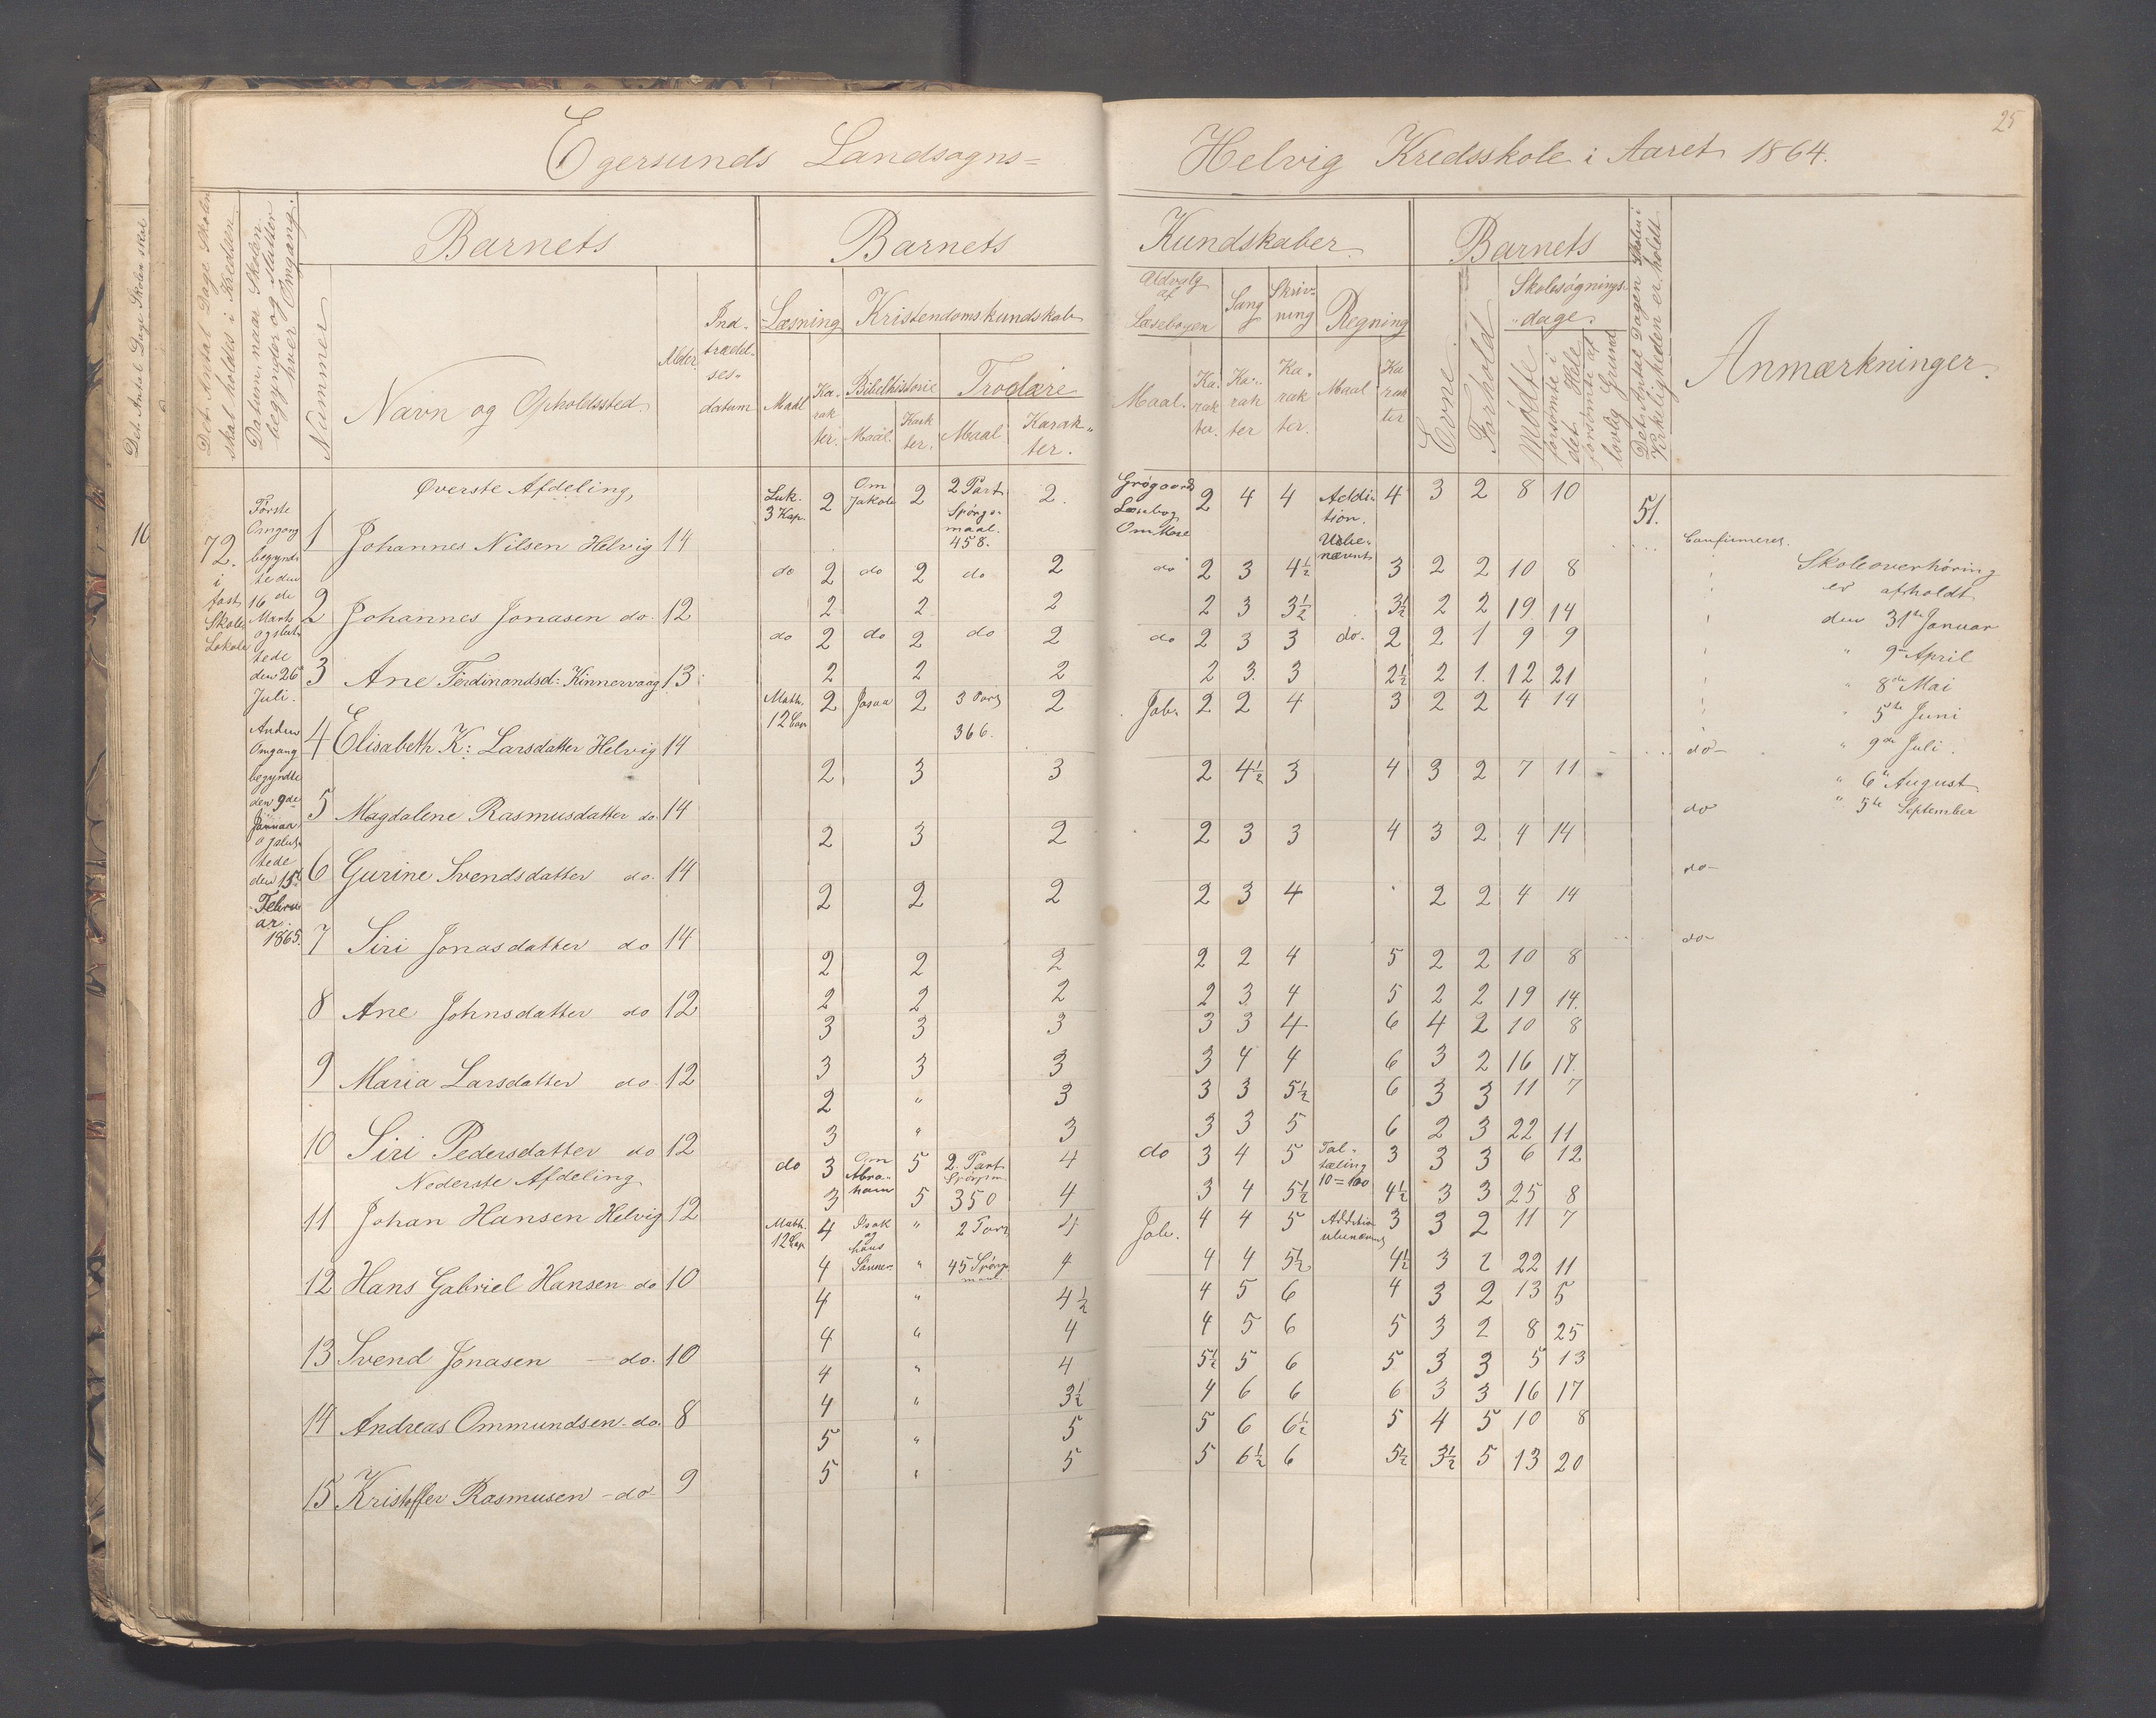 Egersunds Landsogns=
Helvig Kredsskole i Aaret 1864.
25
Det Antal Dage Skolen skal
16
Det Antal Dage Skolen
skal holdes i Kredsen
Datum, naar Skolen
begynder og slutter
hver Omgang.
Nummer
Barnets
Navn og Opholdssted.
Alder.
Ind-
trædel-
ses-
datum
Barnets
Kundskaber
Læsning
Maal
Ka-
rak
ter.
Kristendomskundskab
Bibelhistorie
Maal.
Karak
ter.
Troslære
Maal
Karak-
ter.
Udvalg
af
Læsebogen
Maal.
Ka-
rak
ter.
Sang
Ka-
rak
ter
Skriv-
ning
Ka-
rak
ter.
Regning
Maal
Ka
rak
ter
Barnets
Evne.
Forhold
Skolesøgnings-
dage.
Mødte
forsømte i
det Hele
forsømte af
lovlig Grund
Det Antal Dage Skolen i
Virkeligheden er holdt
Anmærkninger.
72.
i
fast
Skole
Lokale
Første
Omgang
begynd-
te den
16 de
Marts
og slut-
tede
den 26
Juli.
Anden
Omgang
begyndte
den 9de
Januar
og slut-
tede
den 15d
Febru
ar.
1865.
Øverste Afdeling,
1 Johannes Nilsen Helvig 14
2 Johannes Jonasen do. 12
3 Ane Ferdinandsd: Kinnervaag 13
4 Elisabeth K: Larsdatter Helvig 14
5 Magdalene Rasmusdatter do. 14
6 Gurine Svendsdatter do. 14
7 Siri Jonasdatter do 14
8 Ane Johnsdatter do 12
9 Maria Larsdatter do. 12
10 Siri Pedersdatter do 12
Nederste Afdeling
11 Johan Hansen Helvig 12
12 Hans Gabriel Hansen do 10
13 Svend Jonasen — do. 10
14 Andreas Ommundsen - do. 8
15 Kristoffer Rasmusen - do - 9
Luk. 3 Kap. 2 Om Jakob 2 2 Part Spørgs- maal. 458. 2.
do 2 do 2 do 2
2 2 2
do 2 do 2 do 2
2 2 2
Math. 12 Cap 2 Josua 2 3 Part 366. 2
2 3 3
2 3 2
2 2 2
2 2 2
2 2 2
3 3 3
3 3 3
2 " 3
3 " 3
do 3 Om Abra- ham 5 2. Part Spørgsm 4
3 5 350 4
Math. 12 Cap 4 Isak og hans " 2 Part 4
4 Sønner " 45 Spørgs maal 4
4 " 4½
4 " 4
4 " 4
4 " 3½
5 " 5
5 " 5
Grøgaards Læsebog 2 4 4 Addi- tion. 4 3 2 8 10 51.
Ube- nævnt
do 2 3 4½ 3 2 2 10 8
2 3 3½ 3½ 2 2 19 14
do 2 3 3 do. 2 2 1 9 9
2 3. 3 2½ 2 1. 12 21
Job. 2 2 4 3 2 2 4 14
2 4½ 3 4 3 2 7 11
2 3 3 4 3 2 4 14
2 3 4 2 2 4 14
2 2 4 5 2 2 10 8
2 3 4 5 2 2 19 14.
3 3 4 6 4 2 10 8
3 4 4 6 3 2 16 17.
3 3 5½ 6 3 3 11 7
3 3 5 6 2 3 22 11
do 3 4 5 Tal- tæling 10=100 3 3 3 6 12
3 4 5½ 4½ 3 3 25 8
Job. 4 4 5 Addition ubenævnt 3 3 2 11 7
4 4 5½ 4½ 3 2 22 11
4 5 6 4 3 2 13 5
4 5 6 5 3 2 8 25
5½ 5 6 5 3 3 5 13
4 6 6 6 3 3 16 17
5 6 6½ 5 4 5 10 8
5 6½ 6 5½ 3½ 5 13 20
Confirmeres.
do -
do
do -
do -
Skoleoverhøring
er afholdt
den 31te Januar
" 9- April
" 8de Mai
" 5te Juni
" 9de Juli.
" 6te August
" 5te September